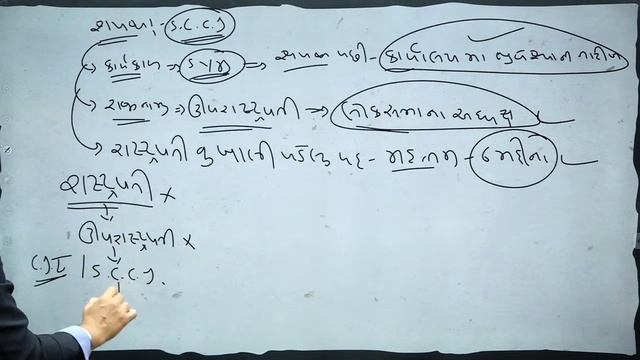 શપથ : S.C.C.J
→ કાર્યકાળ → 5 Yrs ⇒ શપથ પછી - કાર્યાલયમાં
→ રાજીનામું → ઉપરાષ્ટ્રપતી ⇒ લોકસભાના અધ્યક્ષ
→ રાષ્ટ્રપતી નું ખાલી પડેલુ પદ - મહત્તમ - ૬ મહીના
રાષ્ટ્રપતી ×
↓
ઉપરાષ્ટ્રપતી ×
↓
CJI | S.C.C.J.